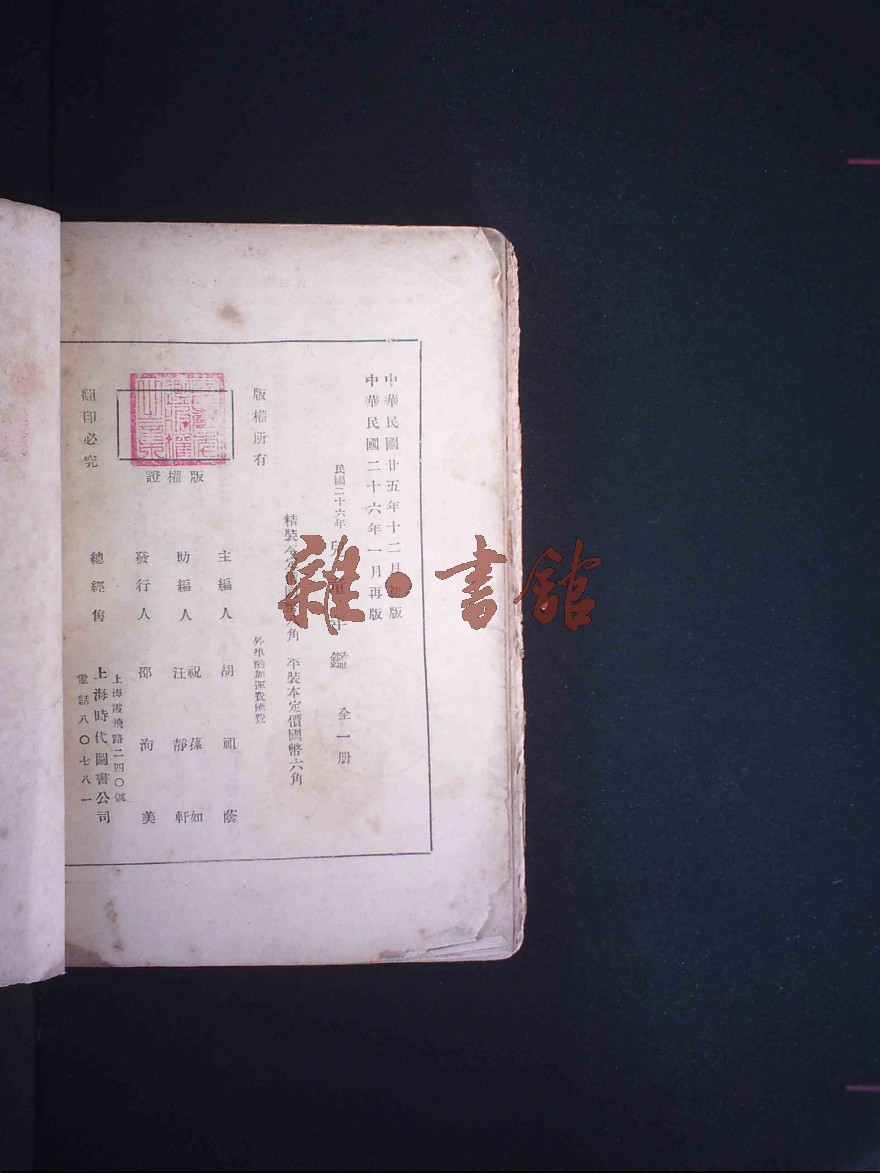 中華民國廿五年十二月初版
中華民國二十六年一月再版
民國二十六年 兒童年鑑 全一册
精裝本定價國幣 角 平裝本定價國幣六角
外埠酌加運費匯費
版權所有
翻印必究
版權證
主編人 胡祖蔭
助編人 祝葆如
汪靜軒
發行人 邵洵美
總經售 上海時代圖書公司
上海霞飛路二四〇號
電話八〇七八一
雜·書館